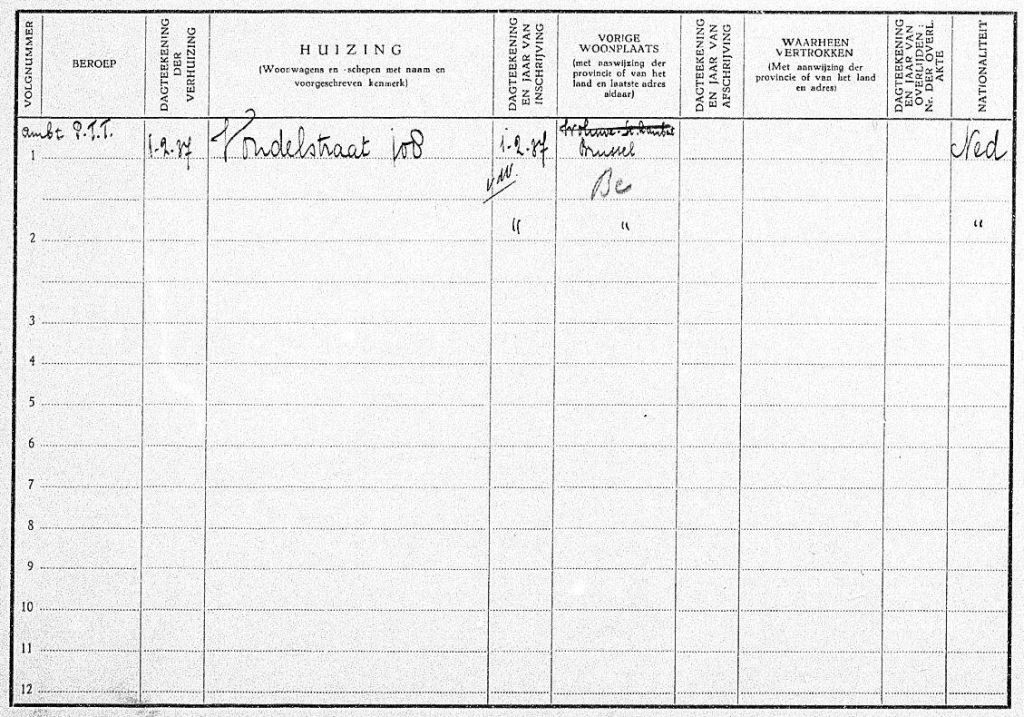 VOLGNUMMER
BEROEP
DAGTEEKENING
DER
VERHUIZING
HUIZING
(Woonwagens en -schepen met naam en
voorgeschreven kenmerk)
DAGTEEKENING
EN JAAR VAN
INSCHRIJVING
VORIGE
WOONPLAATS
(met aanwijzing der
provincie of van het
land en laatste adres
aldaar)
DAGTEEKENING
EN JAAR VAN
AFSCHRIJVING
WAARHEEN
VERTROKKEN
(Met aanwijzing der
provincie of van het land
en adres)
DAGTEEKENING
EN JAAR VAN
OVERLIJDEN;
Nr. DER OVERL.
AKTE
NATIONALITEIT
ambt P.T.T.
1 1-2-37 Vondelstraat 108 1-2-37 Brussel Ned
Be
2 " " "
3
4
5
6
7
8
9
10
11
12